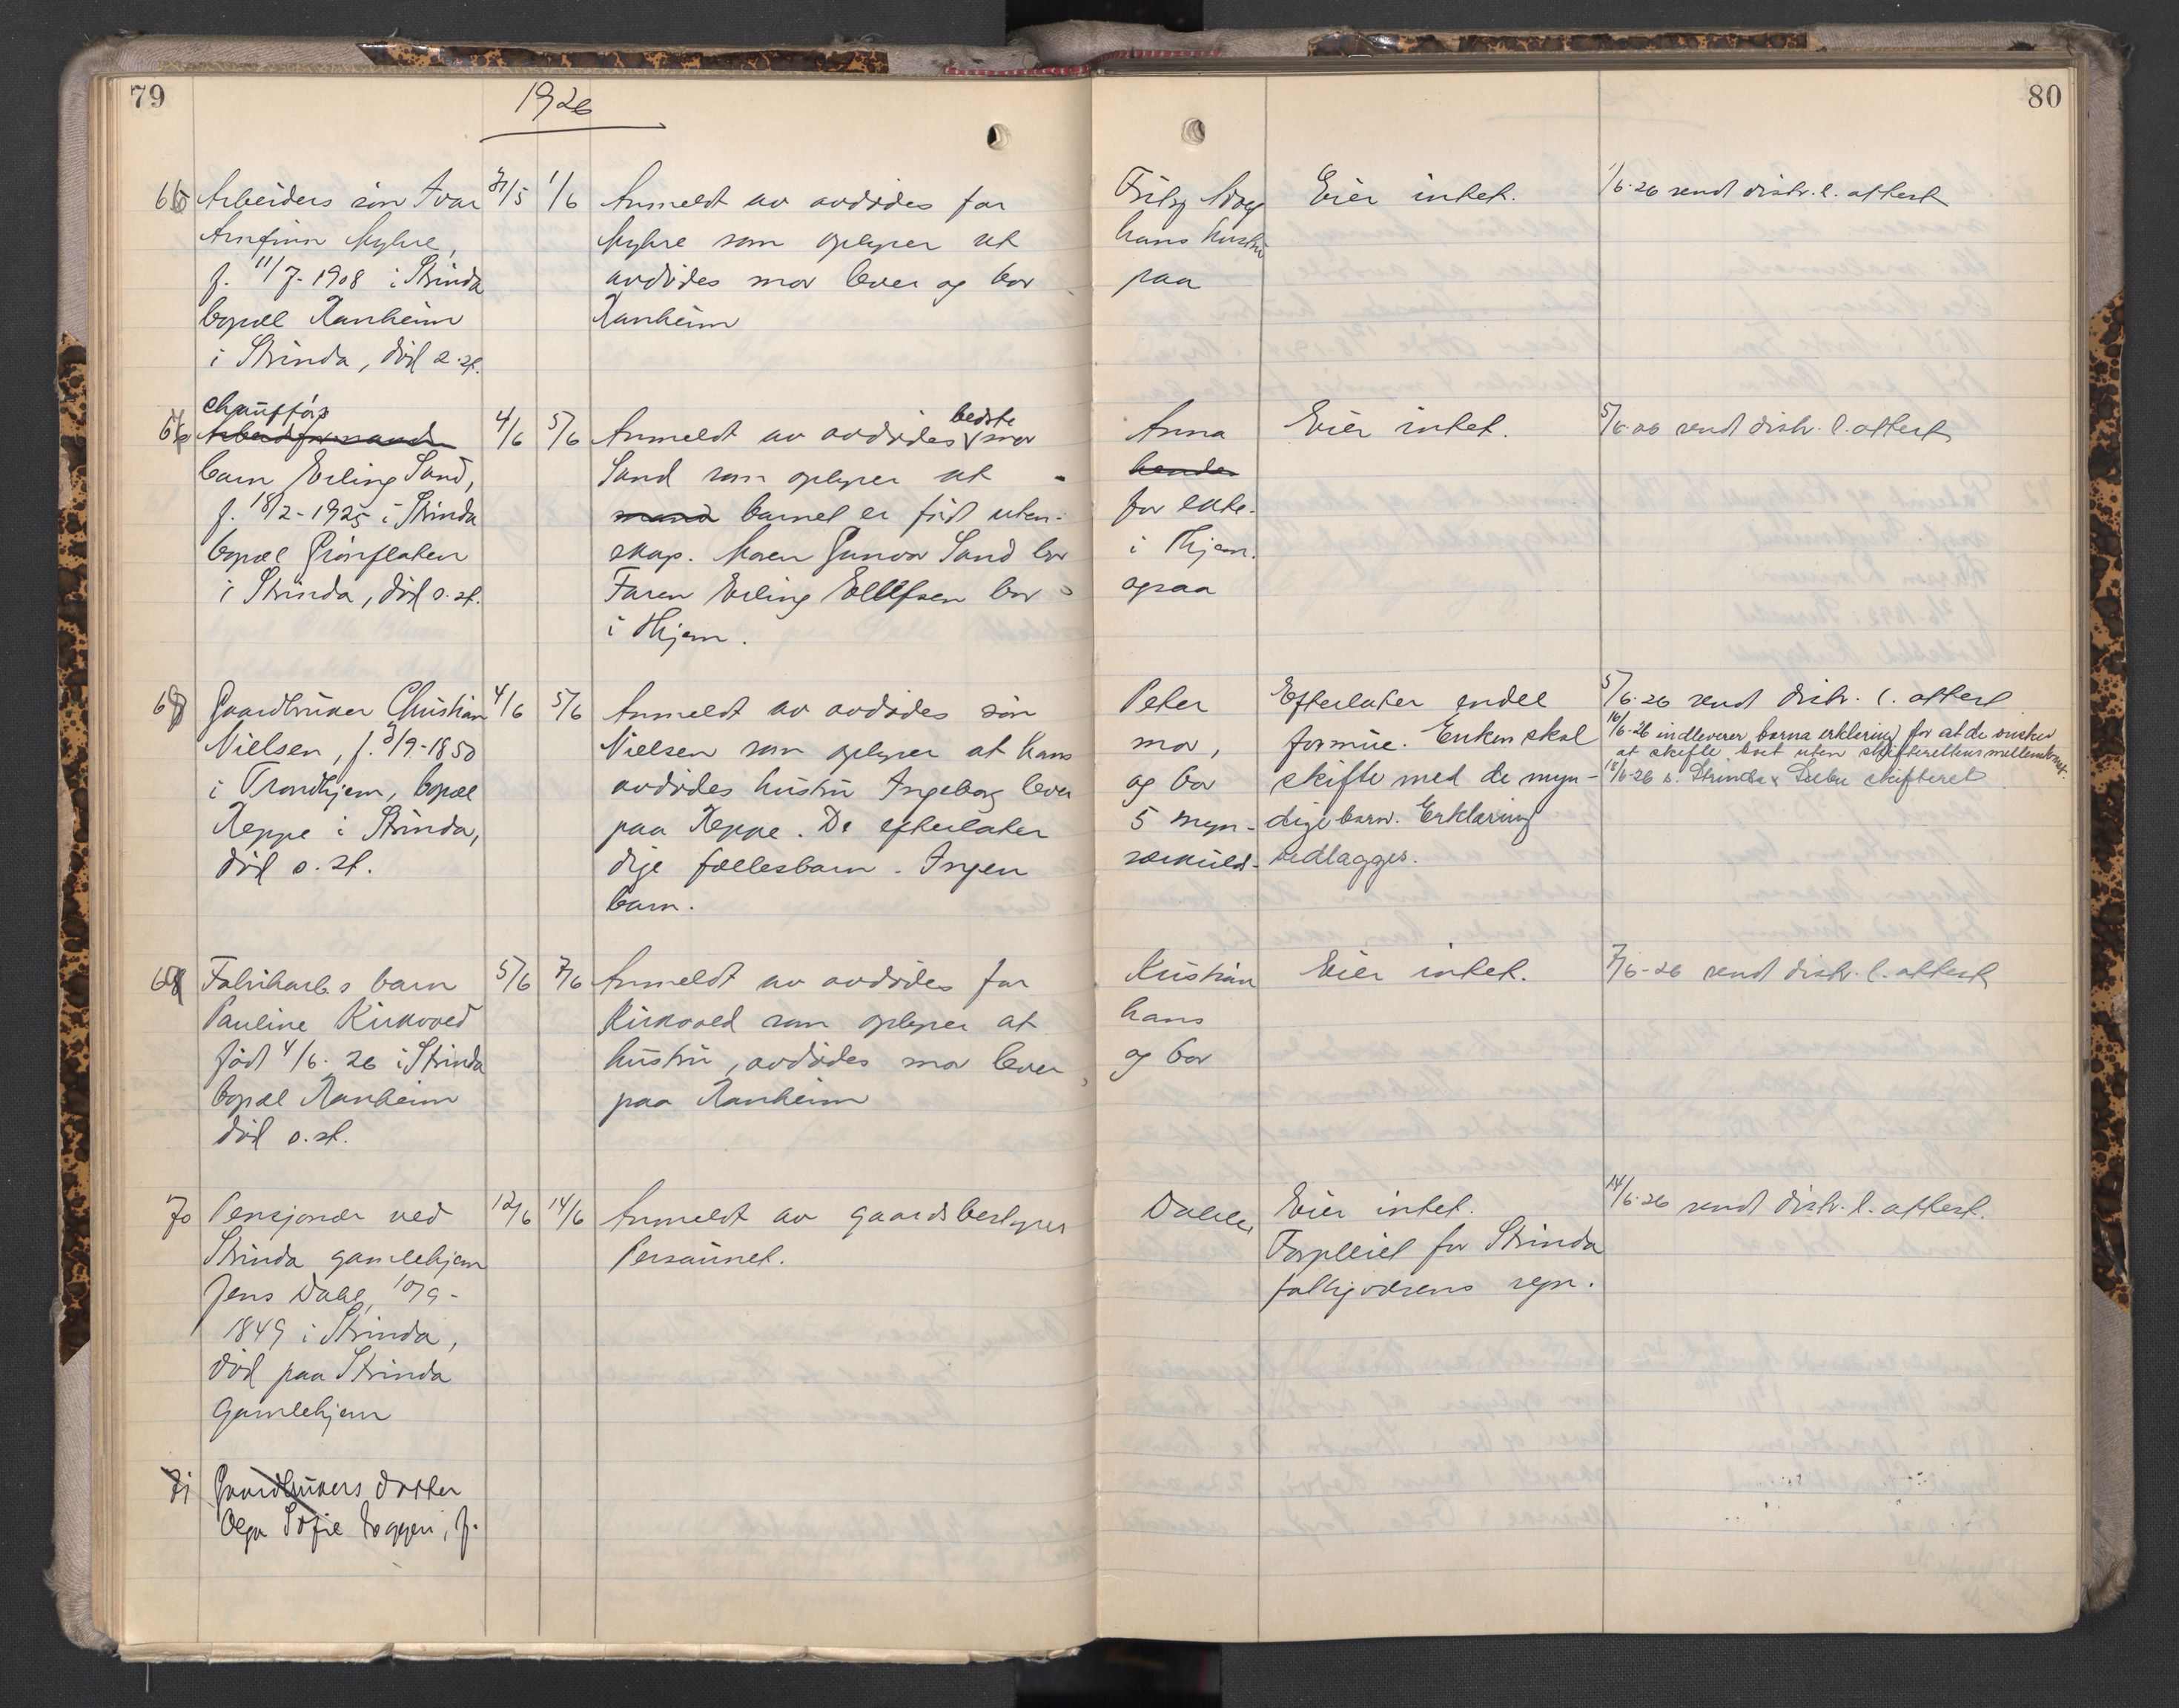 79
1926
80
66 Arbeiders søn Ivar 31/5 1/6 Anmeldt av avdødes far Fritz Eier intet. 1/6-26 sendt distr. l. attest
Arnfinn Myhre, Myhre som oplyser at hans hustru
f. 11/7-1908 i Strinda avdødes mor lever og bor paa
bopæl Ranheim Ranheim
i Strinda, død o. st.
chaufførs bedste
67 Arbeidsformands 4/6 5/6 Anmeldt av avdødes mor Anna Eier intet. 5/6-26 sendt distr. l. attest
barn Erling Sand, Sand som oplyser at hendes
f. 18/2-1925 i Strinda mand barnet er født uten- for ekte-
bopæl Grønflaten skap. Moren Gunvor Sand bor i Thjem.
i Strinda, død o. st. Faren Erling Ellefsen bor ogsaa
i Thjem.
68 Gaardbruker Christian 4/6 5/6 Anmeldt av avdødes søn Peter Efterlater endel 5/6-26 sendt distr. l. attest
Nielsen, f. 3/9-1850 Nielsen som oplyser at hans mor, formue. Enken skal 16/6-26 indleverer barna erklæring for at de ønsker
at skifte boet uten skifterettens mellemkomst.
i Trondhjem, bopæl avdødes hustru Ingeborg lever og bor skifte med de myn- 18/6-26 s. Strinda & Selbu skifteret
Reppe i Strinda, paa Reppe. De efterlater 5 myn- dige barn. Erklæring
død o. st. dige fællesbarn. Ingen særkuld- vedlægges.
barn.
69 Fabrikarb.s barn 5/6 7/6 Anmeldt av avdødes far Kristian Eier intet. 7/6-26 sendt distr. l. attest
Pauline Kirkvold Kirkvold som oplyser at hans
født 4/6-26 i Strinda hustru, avdødes mor lever og bor
bopæl Ranheim paa Ranheim
død o. st.
70 Pensjonær ved 12/6 14/6 Anmeldt av gaardsbestyrer Dahle Eier intet. 14/6-26 sendt distr. l. attest.
Strinda gamlehjem Persaunet. Forpleiet for Strinda
Jens Dahl, 10/9- fattigvæsens regn.
1849 i Strinda,
død paa Strinda
Gamlehjem
71 Gaardbrukers datter
Olga Sofie Loggen, f.